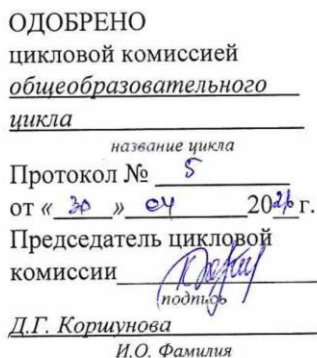 ОДОБРЕНО
цикловой комиссией
общеобразовательного
цикла
название цикла
Протокол № 5
от « 30 » 04 20 г.
Председатель цикловой
комиссии
подпись
Д.Г. Коршунова
И.О. Фамилия